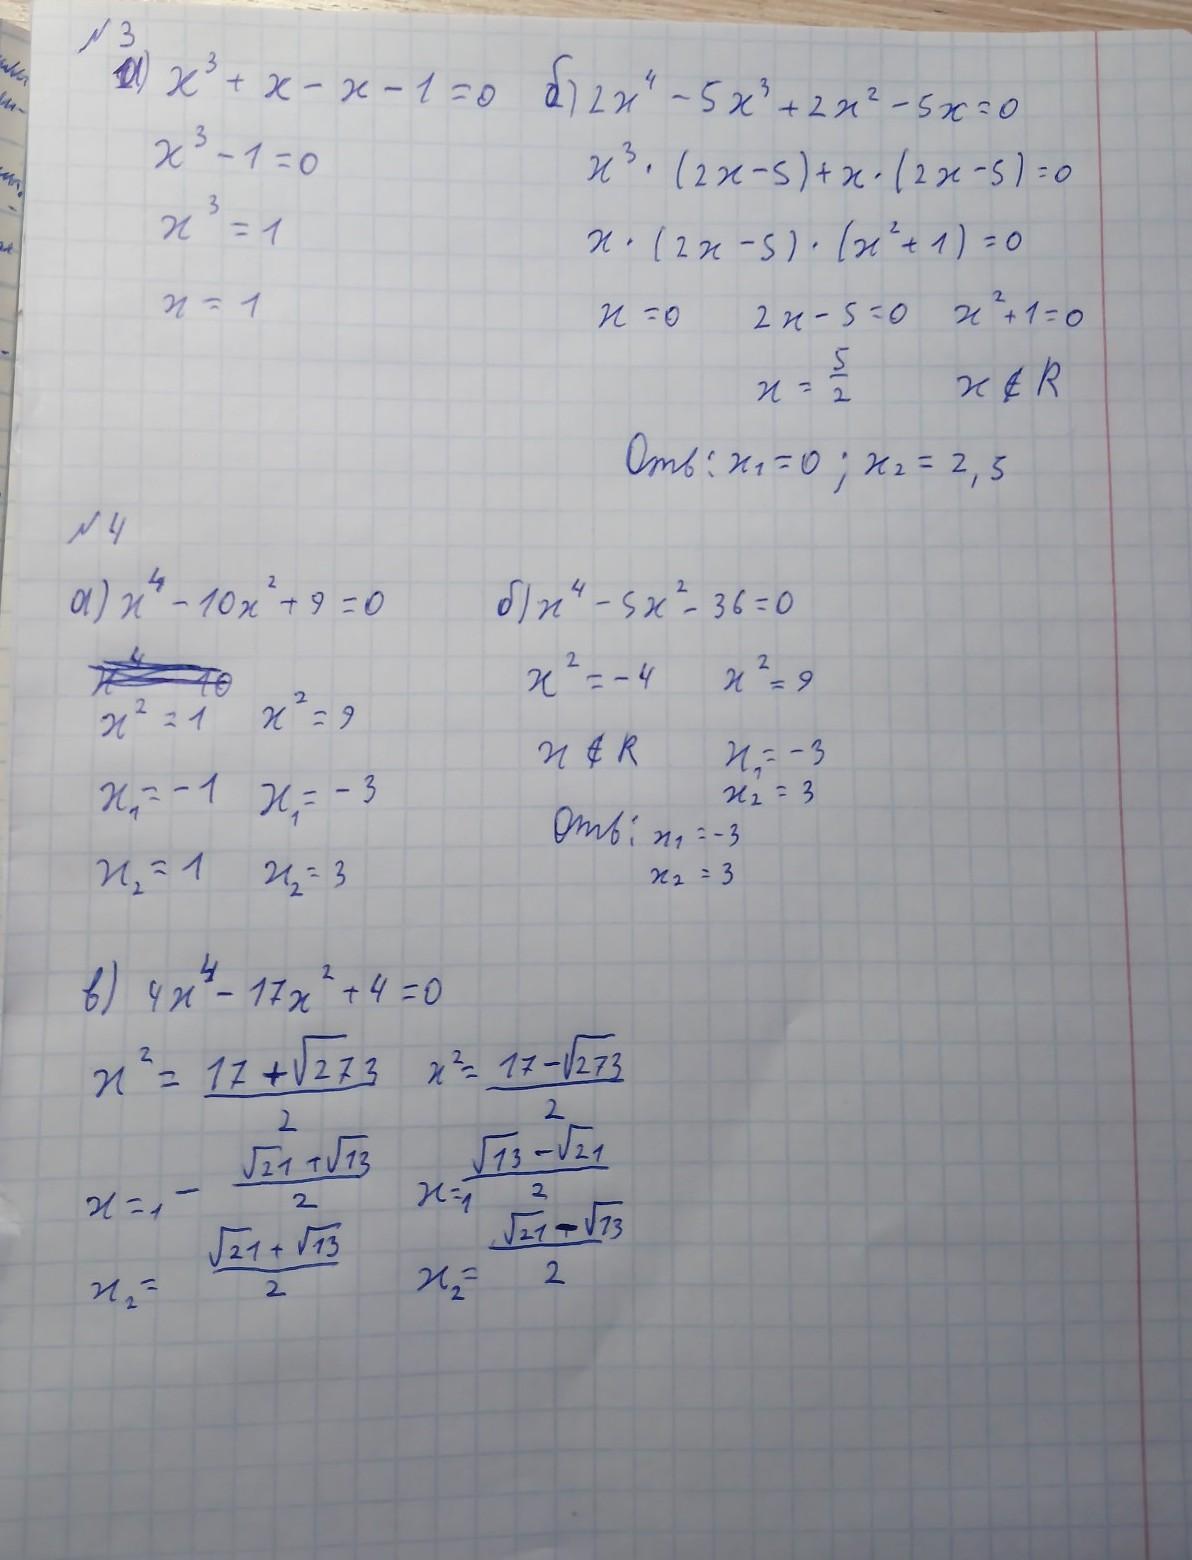 №3
а) x³ + x - x - 1 = 0
x³ - 1 = 0
x³ = 1
x = 1
б) 2x⁴ - 5x³ + 2x² - 5x = 0
x³ · (2x - 5) + x · (2x - 5) = 0
x · (2x - 5) · (x² + 1) = 0
x = 0 2x - 5 = 0 x² + 1 = 0
x = 5/2 x ∉ R
Отв: x₁ = 0 ; x₂ = 2,5
№4
а) x⁴ - 10x² + 9 = 0
x² = 1 x² = 9
x₁ = -1 x₁ = -3
x₂ = 1 x₂ = 3
б) x⁴ - 5x² - 36 = 0
x² = -4 x² = 9
x ∉ R x₁ = -3
x₂ = 3
Отв: x₁ = -3
x₂ = 3
в) 4x⁴ - 17x² + 4 = 0
x² = (17 + √273)/2 x² = (17 - √273)/2
x₁ = - (√21 + √13)/2 x₁ = (√13 - √21)/2
x₂ = (√21 + √13)/2 x₂ = (√21 - √13)/2